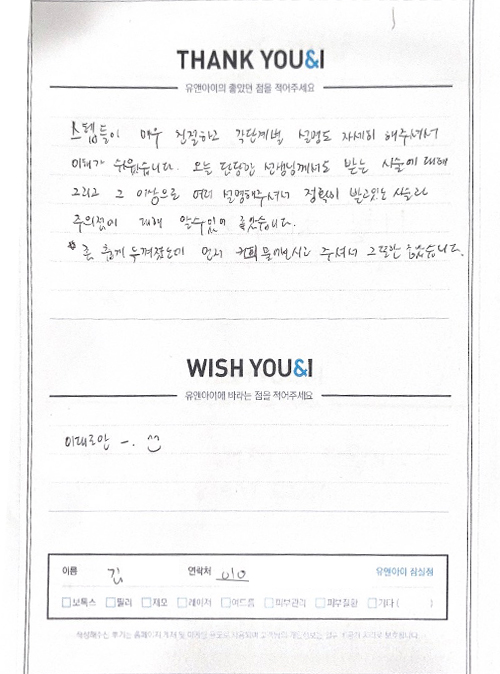 THANK YOU&I
유앤아이의 좋았던 점을 적어주세요
스텝들이 매우 친절하고 각단계별 설명도 자세히 해주셔서
이해가 쉬웠습니다. 오늘 담당한 선생님께서도 받는 시술에 대해
그리고 그 이상으로 여러 설명해주셔서 정확히 받고있는 시술과
주의점에 대해 알수있어 좋았습니다.
춥게 느껴졌는데 먼저 커피 물어봐주시고 주셔서 그또한 좋았습니다.
WISH YOU&I
유앤아이에 바라는 점을 적어주세요
이대로만 ~.
이름 김 연락처 010 유앤아이 잠실점
보톡스 필러 제모 레이저 여드름 피부관리 피부질환 기타 ( )